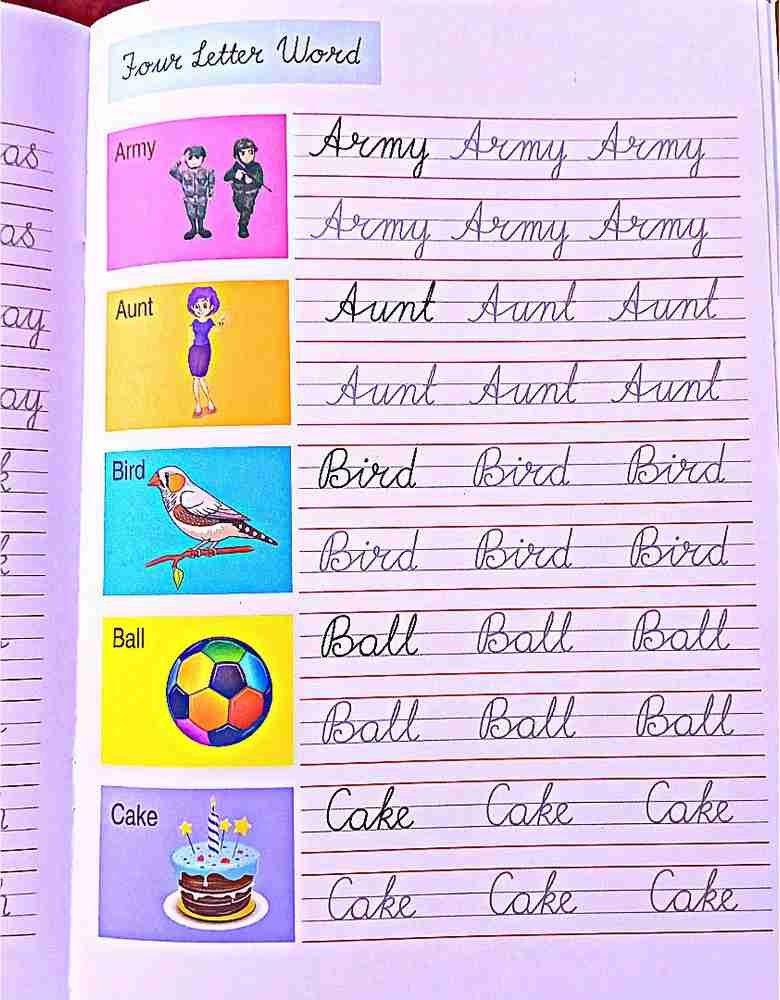 Four Letter Word
Army
Army Army Army
Army Army Army
Aunt
Aunt Aunt Aunt
Aunt Aunt Aunt
Bird
Bird Bird Bird
Bird Bird Bird
Ball
Ball Ball Ball
Ball Ball Ball
Cake
Cake Cake Cake
Cake Cake Cake
as
as
ay
ay